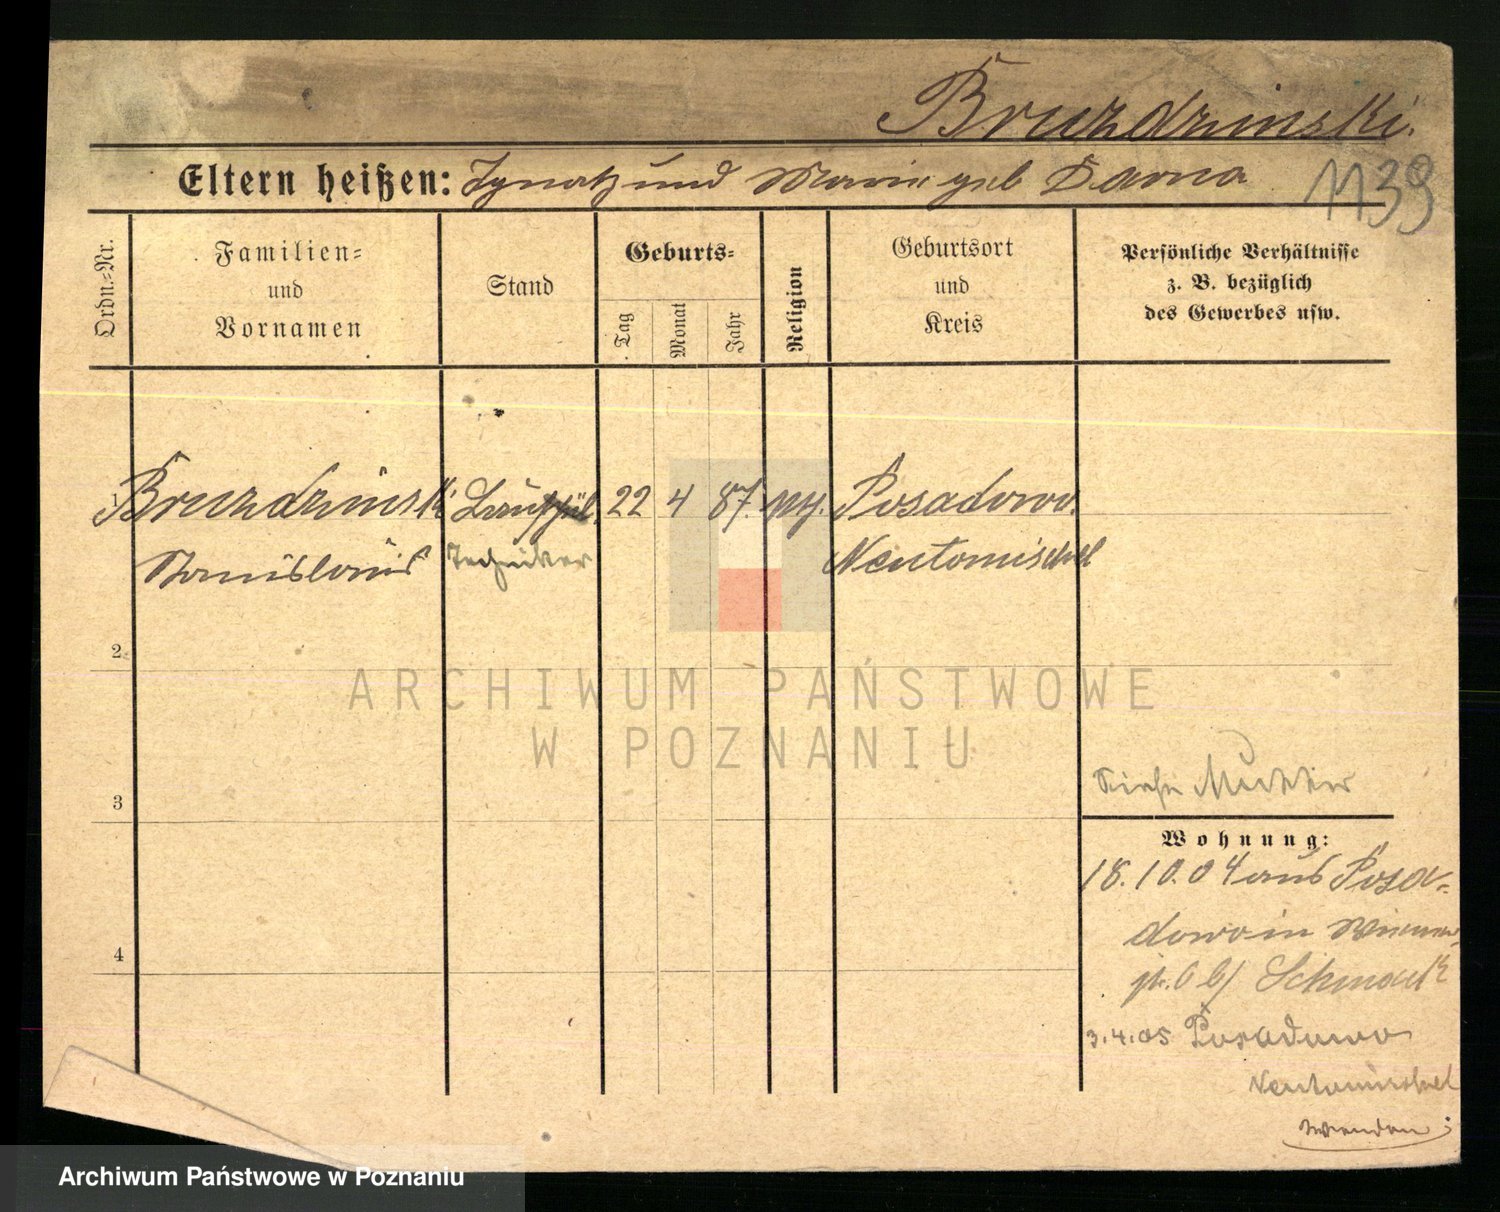 Bruzdzinski.
Eltern heißen: Ignatz und Marie geb Darna
1139
Ordn.=Nr.
Familien=
und
Vornamen
Stand
Geburts=
Tag
Monat
Jahr
Religion
Geburtsort
und
Kreis
Persönliche Verhältnisse
z. B. bezüglich
des Gewerbes usw.
1 Bruzdzinski 22 4 87. Posadowo.
Stanislaus Techniker Neutomischel
2.
3
4
Siehe Mutter
Wohnung:
18.10.04 aus Posa-
dowo in Wiener
str. 6 b/
3.4.05 Posadowo
Neutomischel
ARCHIWUM PAŃSTWOWE
W POZNANIU
Archiwum Państwowe w Poznaniu